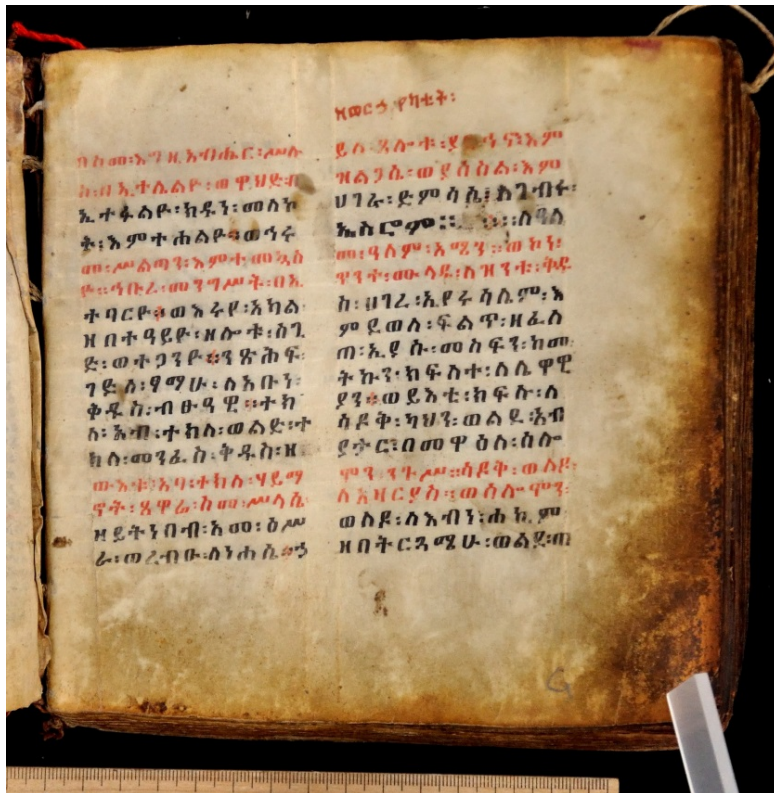 ዘወርኃ የካቲት፡
በስመ፡እግዚአብሔር፡ሥሉ
ስ፡በኢተሌልዮ፡ወዋህድ፡በ
ኢተፋልዮ፡ከዱን፡መለኮ
ቱ፡እምተሐልዮ።ወኅሩ
መ፡ሥልጣን፡እምተመኳስ
ዮ።ኅቡረ፡መንግሥት፡በኢ
ተባርዮ።ወእሩየ፡አካል
ዘበተዓይዮ፡ዘሎቱ፡ስጊ
ድ፡ወተጋንዮ።ንጽሕፍ፡
ገድለ፡ፃማሁ፡ለአቡነ፡
ቅዱስ፡ብፁዓዊ።ተክ
ለ፡አብ፡ተከለ፡ወልድ፡ተ
ከለ፡መንፈስ፡ቅዱስ፡ዘ
ውእቱ፡አባ፡ተክለ፡ሃይማ
ኖት፡ጸዋሬ፡ስመ፡ሥላሴ
ዘይትነበብ፡አመ፡ዕሥ
ራ፡ወረብዑ፡ለንሐሴ።ኃ
ይለ፡ጸሎቱ፡
ዝልጋሴ፡ወያሰስል፡እም
ሀገራ፡ድምሳሴ፤ለገብሩ፡
ለዓለ
መ፡ዓለም፡አሜን።ወኮነ፡
ዋንተ፡ሙላዱ፡ለዝንቱ፡ቅዱ
ስ፡ሀገረ፡ኢየሩሳሌም፡እ
ምደወለ፡ፍልጥ፡ዘፈለ
ጠ፡ኢያሱ፡መስፍን፡ከመ
ትኩን፡ክፍለተ፡ለሌዋዊ
ያን።ወይእቲ፡ክፍሉ፡ለ
ሳዶቅ፡ካህን፡ወልደ፡አብ
ያታር፤በመዋዕለ፡ሰሎ
ሞን፡ንጉሥ።ሳዶቅ፡ወለዶ፡
ለአዛርያስ።ወሰሎሞን፡
ወለዶ፡ለእብነ፡ሐኪም
ዘበትርጓሜሁ፡ወልደ፡ጠ